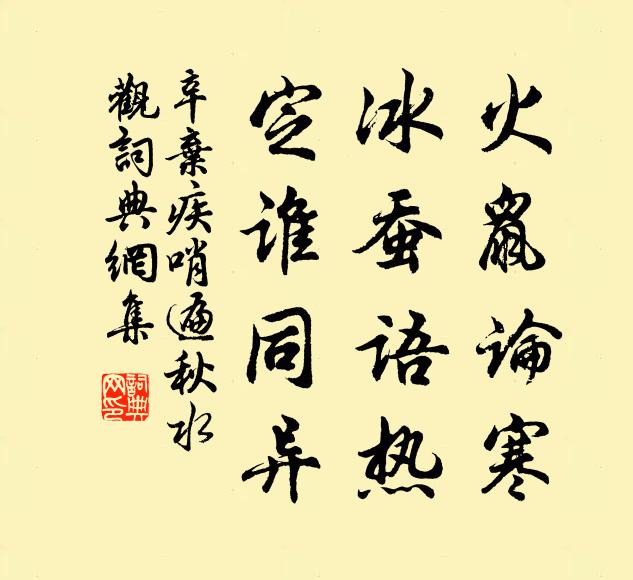 火鼠论寒
冰蚕语热
定谁同异
辛棄疾哨遍秋水
觀詞典網集
詞典網印